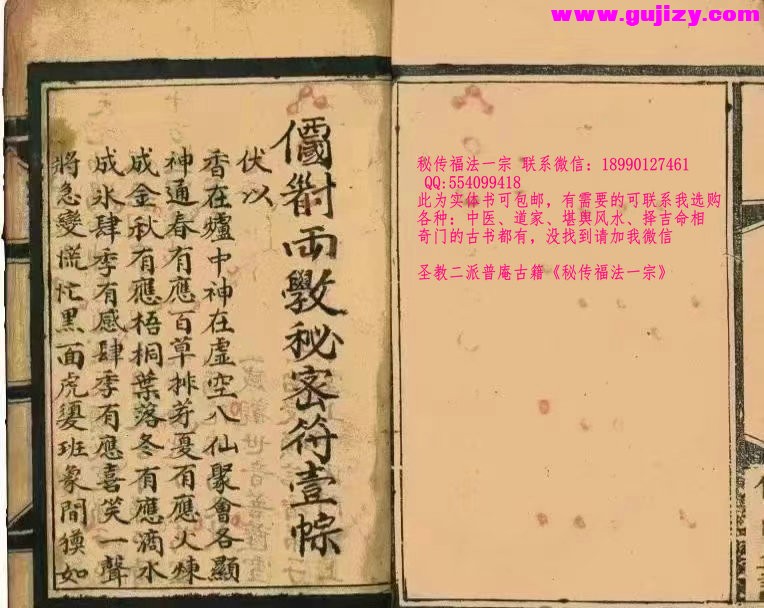 www.gujizy.com
両教秘密符壹
伏以
香在爐中神在虛空八仙聚會各顯
神通春有應百草排芽憂有應火煉
成金秋有應梧桐葉落冬有應滴水
成氷肆季有感肆季有應喜笑一聲
將急變慌忙黑面虎班象間如
秘传福法一宗 联系微信：18990127461
QQ:554099418
此为实体书可包邮，有需要的可联系我选购
各种：中医、道家、堪舆风水、择吉命相
奇门的古书都有，没找到请加我微信
圣教二派普庵古籍《秘传福法一宗》